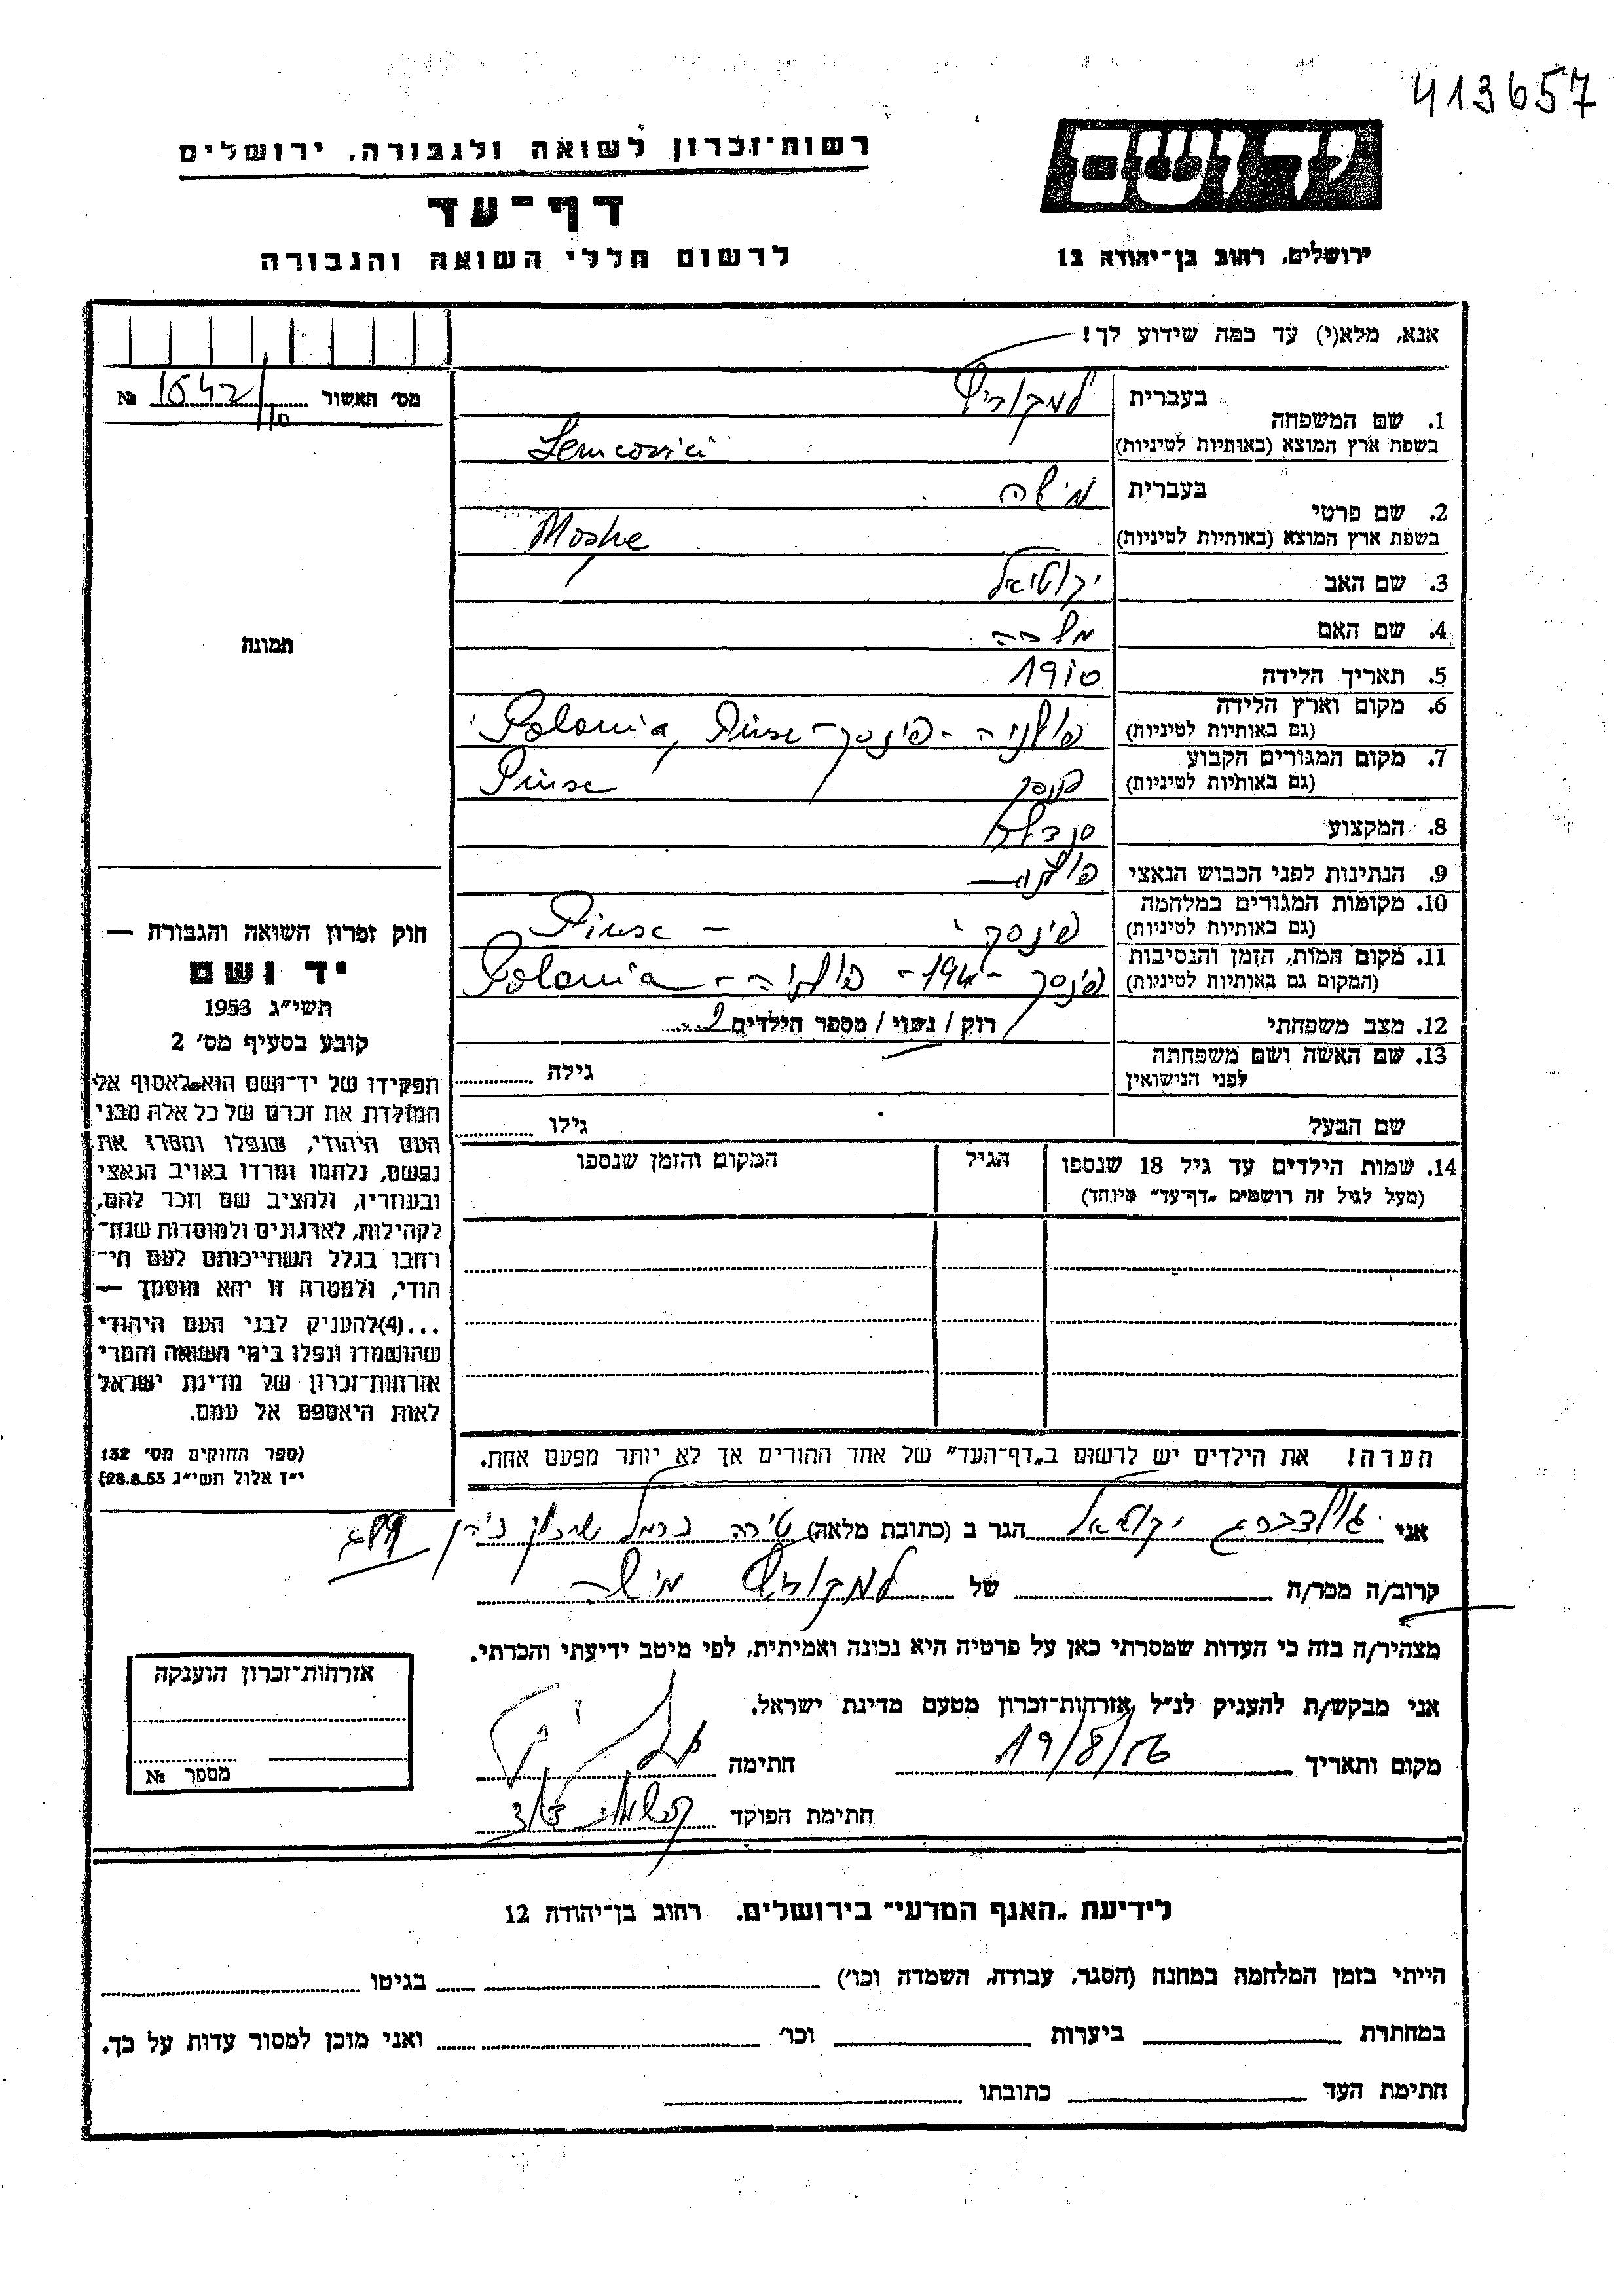 413657
יד ושם
רשות־זכרון לשואה ולגבורה, ירושלים
דף־עד
לרשום חללי השואה והגבורה
ירושלים, רחוב בן־יהודה 12
אנא, מלא(י) עד כמה שידוע לך!
מס' האשור 1542/10 №
תמונה
1. שם המשפחה
בעברית למקוביץ
בשפת ארץ המוצא (באותיות לטיניות) Lemcovici
2. שם פרטי
בעברית מישה
בשפת ארץ המוצא (באותיות לטיניות) Moshe
3. שם האב יקותיאל
4. שם האם
5. תאריך הלידה 1910
6. מקום וארץ הלידה
(גם באותיות לטיניות) פולניה - פינסק - Polonia, Pinsc
7. מקום המגורים הקבוע
(גם באותיות לטיניות) פינסק Pinsc
8. המקצוע סנדלר
9. הנתינות לפני הכבוש הנאצי פולנית
10. מקומות המגורים במלחמה
(גם באותיות לטיניות) פינסק - Pinsc
11. מקום המות, הזמן והנסיבות
(המקום גם באותיות לטיניות) פינסק - פולניה - Polonia
12. מצב משפחתי רוק / נשוי / מספר הילדים 2
13. שם האשה ושם משפחתה
לפני הנישואין
גילה
שם הבעל גילו
14. שמות הילדים עד גיל 18 שנספו
(מעל לגיל זה רושמים „דף־עד" מיוחד)
הגיל
המקום והזמן שנספו
הערה! את הילדים יש לרשום ב„דף־העד" של אחד ההורים אך לא יותר מפעם אחת.
חוק זכרון השואה והגבורה —
יד ושם
תשי"ג 1953
קובע בסעיף מס' 2
תפקידו של יד־ושם הוא לאסוף אל
המולדת את זכרם של כל אלה מבני
העם היהודי, שנפלו ומסרו את
נפשם, נלחמו ומרדו באויב הנאצי
ובעוזריו, ולהציב שם וזכר להם,
לקהילות, לארגונים ולמוסדות שנח־
רחבו בגלל השתייכותם לעם הי־
הודי, ולמטרה זו יהא מוסמך —
...(4)להעניק לבני העם היהודי
שהושמדו ונפלו בימי השואה והמרי
אזרחות־זכרון של מדינת ישראל
לאות היאספם אל עמם.
(ספר החוקים מס' 132
י"ז אלול תשי"ג 28.8.53)
אני גולדברג יקותיאל הגר ב (כתובת מלאה) טירה כרמל שיכון
קרוב/ה מכר/ה של למקוביץ מישה
מצהיר/ה בזה כי העדות שמסרתי כאן על פרטיה היא נכונה ואמיתית, לפי מיטב ידיעתי והכרתי.
אני מבקש/ת להעניק לנ"ל אזרחות־זכרון מטעם מדינת ישראל.
מקום ותאריך 19/8/56 חתימה
חתימת הפוקד
אזרחות־זכרון הוענקה
מספר №
לידיעת „האגף המדעי" בירושלים, רחוב בן־יהודה 12
הייתי בזמן המלחמה במחנה (הסגר, עבודה, השמדה וכו') בגיטו
במחתרת ביערות וכו' ואני מוכן למסור עדות על כך.
חתימת העד כתובתו